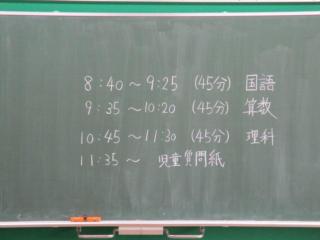 8:40～9:25 (45分) 国語
9:35～10:20 (45分) 算数
10:45～11:30 (45分) 理科
11:35～ 児童質問紙